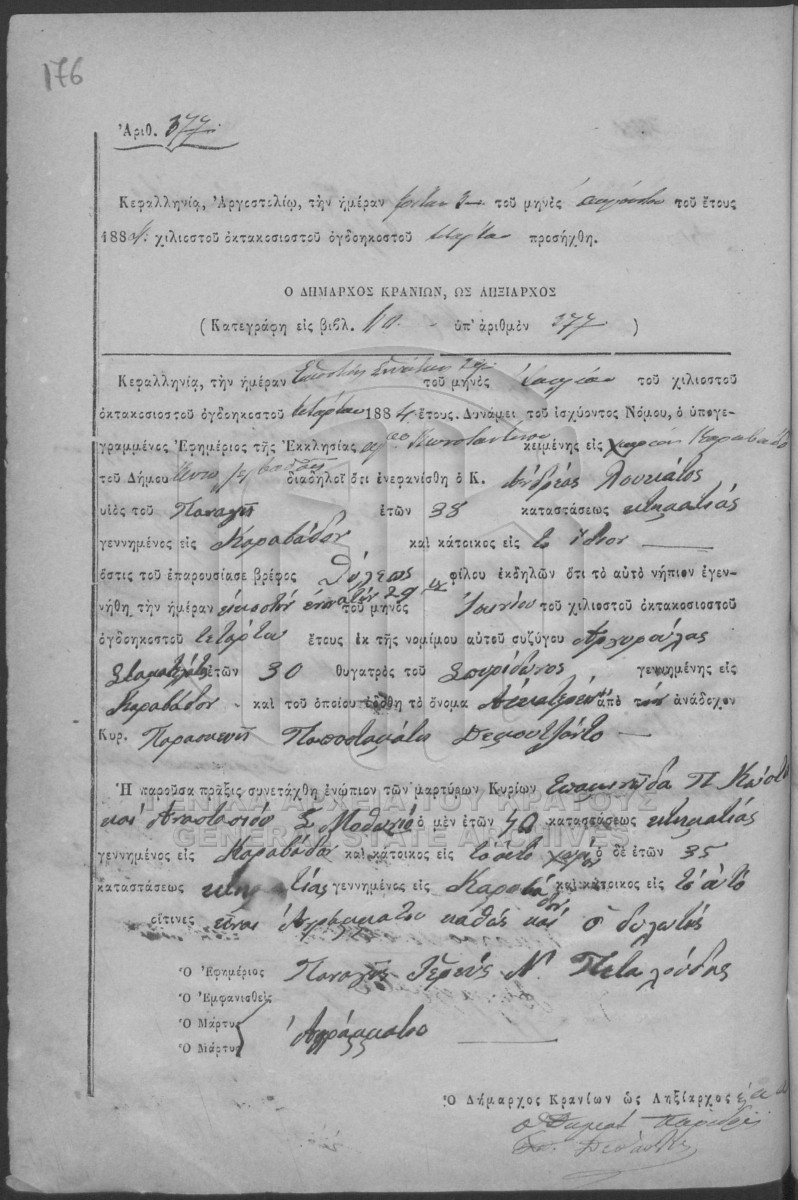 176
Ἀριθ. 377
Κεφαλληνίᾳ, Ἀργοστολίῳ, τὴν ἡμέραν τοῦ μηνὸς αὐγούστου τοῦ ἔτους
1884. χιλιοστοῦ ὀκτακοσιοστοῦ ὀγδοηκοστοῦ τετάρτου προσήχθη.
Ὁ ΔΗΜΑΡΧΟΣ ΚΡΑΝΙΩΝ, ΩΣ ΛΗΞΙΑΡΧΟΣ
(Κατεγράφη εἰς βιβλ. ὑπ' ἀριθμὸν 377)
Κεφαλληνίᾳ, τὴν ἡμέραν εἰκοστὴν ἐννάτην 29 τοῦ μηνὸς τοῦ χιλιοστοῦ
ὀκτακοσιοστοῦ ὀγδοηκοστοῦ τετάρτου 1884 ἔτους. Δυνάμει τοῦ ἰσχύοντος Νόμου, ὁ ὑπογε-
γραμμένος Ἐφημέριος τῆς Ἐκκλησίας ἁγίου Κωνσταντίνου κειμένης εἰς χωρίον Καραβάδο
τοῦ Δήμου διαδηλοῖ ὅτι ἐνεφανίσθη ὁ Κ. Ἀνδρέας Λουκάτος
υἱὸς τοῦ Παναγῆ ἐτῶν 38 καταστάσεως κτηματίας
γεννημένος εἰς Καραβάδον καὶ κάτοικος εἰς τὸ ἴδιον
ὅστις τοῦ ἐπαρουσίασε βρέφος θήλεως φίλου ἐκδηλῶν ὅτι τὸ αὐτὸ νήπιον ἐγεν-
νήθη τὴν ἡμέραν εἰκοστὴν ἐννάτην 29 τοῦ μηνὸς Ἰουνίου τοῦ χιλιοστοῦ ὀκτακοσιοστοῦ
ὀγδοηκοστοῦ τετάρτου ἔτους ἐκ τῆς νομίμου αὐτοῦ συζύγου Ἀργυρούλας
ἐτῶν 30 θυγατρὸς τοῦ Σπυρίδωνος γεννημένης εἰς
Καραβάδον - καὶ τοῦ ὁποίου ἐδόθη τὸ ὄνομα Αἰκατερίνη ἀπὸ τὸν ἀνάδοχον
Κυρ. Παρασκευή
Ἡ παροῦσα πρᾶξις συνετάχθη ἐνώπιον τῶν μαρτύρων Κυρίων Ἐπαμεινόνδα Π.
καὶ Ἀναστασίου Σ. ὁ μὲν ἐτῶν 40 καταστάσεως κτηματίας
γεννημένος εἰς Καραβάδον καὶ κάτοικος εἰς τὸ αὐτὸ ὁ δὲ ἐτῶν 35
καταστάσεως κτηματίας γεννημένος εἰς Καραβάδον καὶ κάτοικος εἰς τὸ αὐτὸ
οἵτινες εἶναι ἀγράμματοι καθὼς καὶ ὁ δηλωτής
Ὁ Ἐφημέριος Παναγῆς Ἱερεὺς Ν. Πεταλούδης
Ὁ Ἐμφανισθεὶς
Ὁ Μάρτυς Ἀγράμματοι
Ὁ Μάρτυς
Ὁ Δήμαρχος Κρανίων ὡς Ληξίαρχος
ΓΕΝΙΚΑ ΑΡΧΕΙΑ ΤΟΥ ΚΡΑΤΟΥΣ
GENERAL STATE ARCHIVES